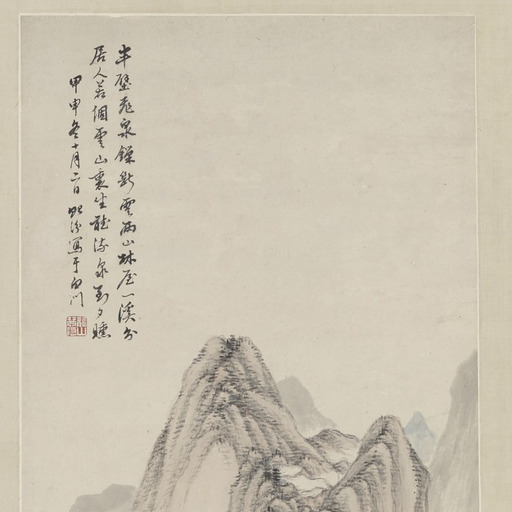 半壁飛泉鎖斷雲兩山林屋一溪分
居人若個雲山裏坐聽流泉到夕曛
甲申冬十月二日 寫于白川